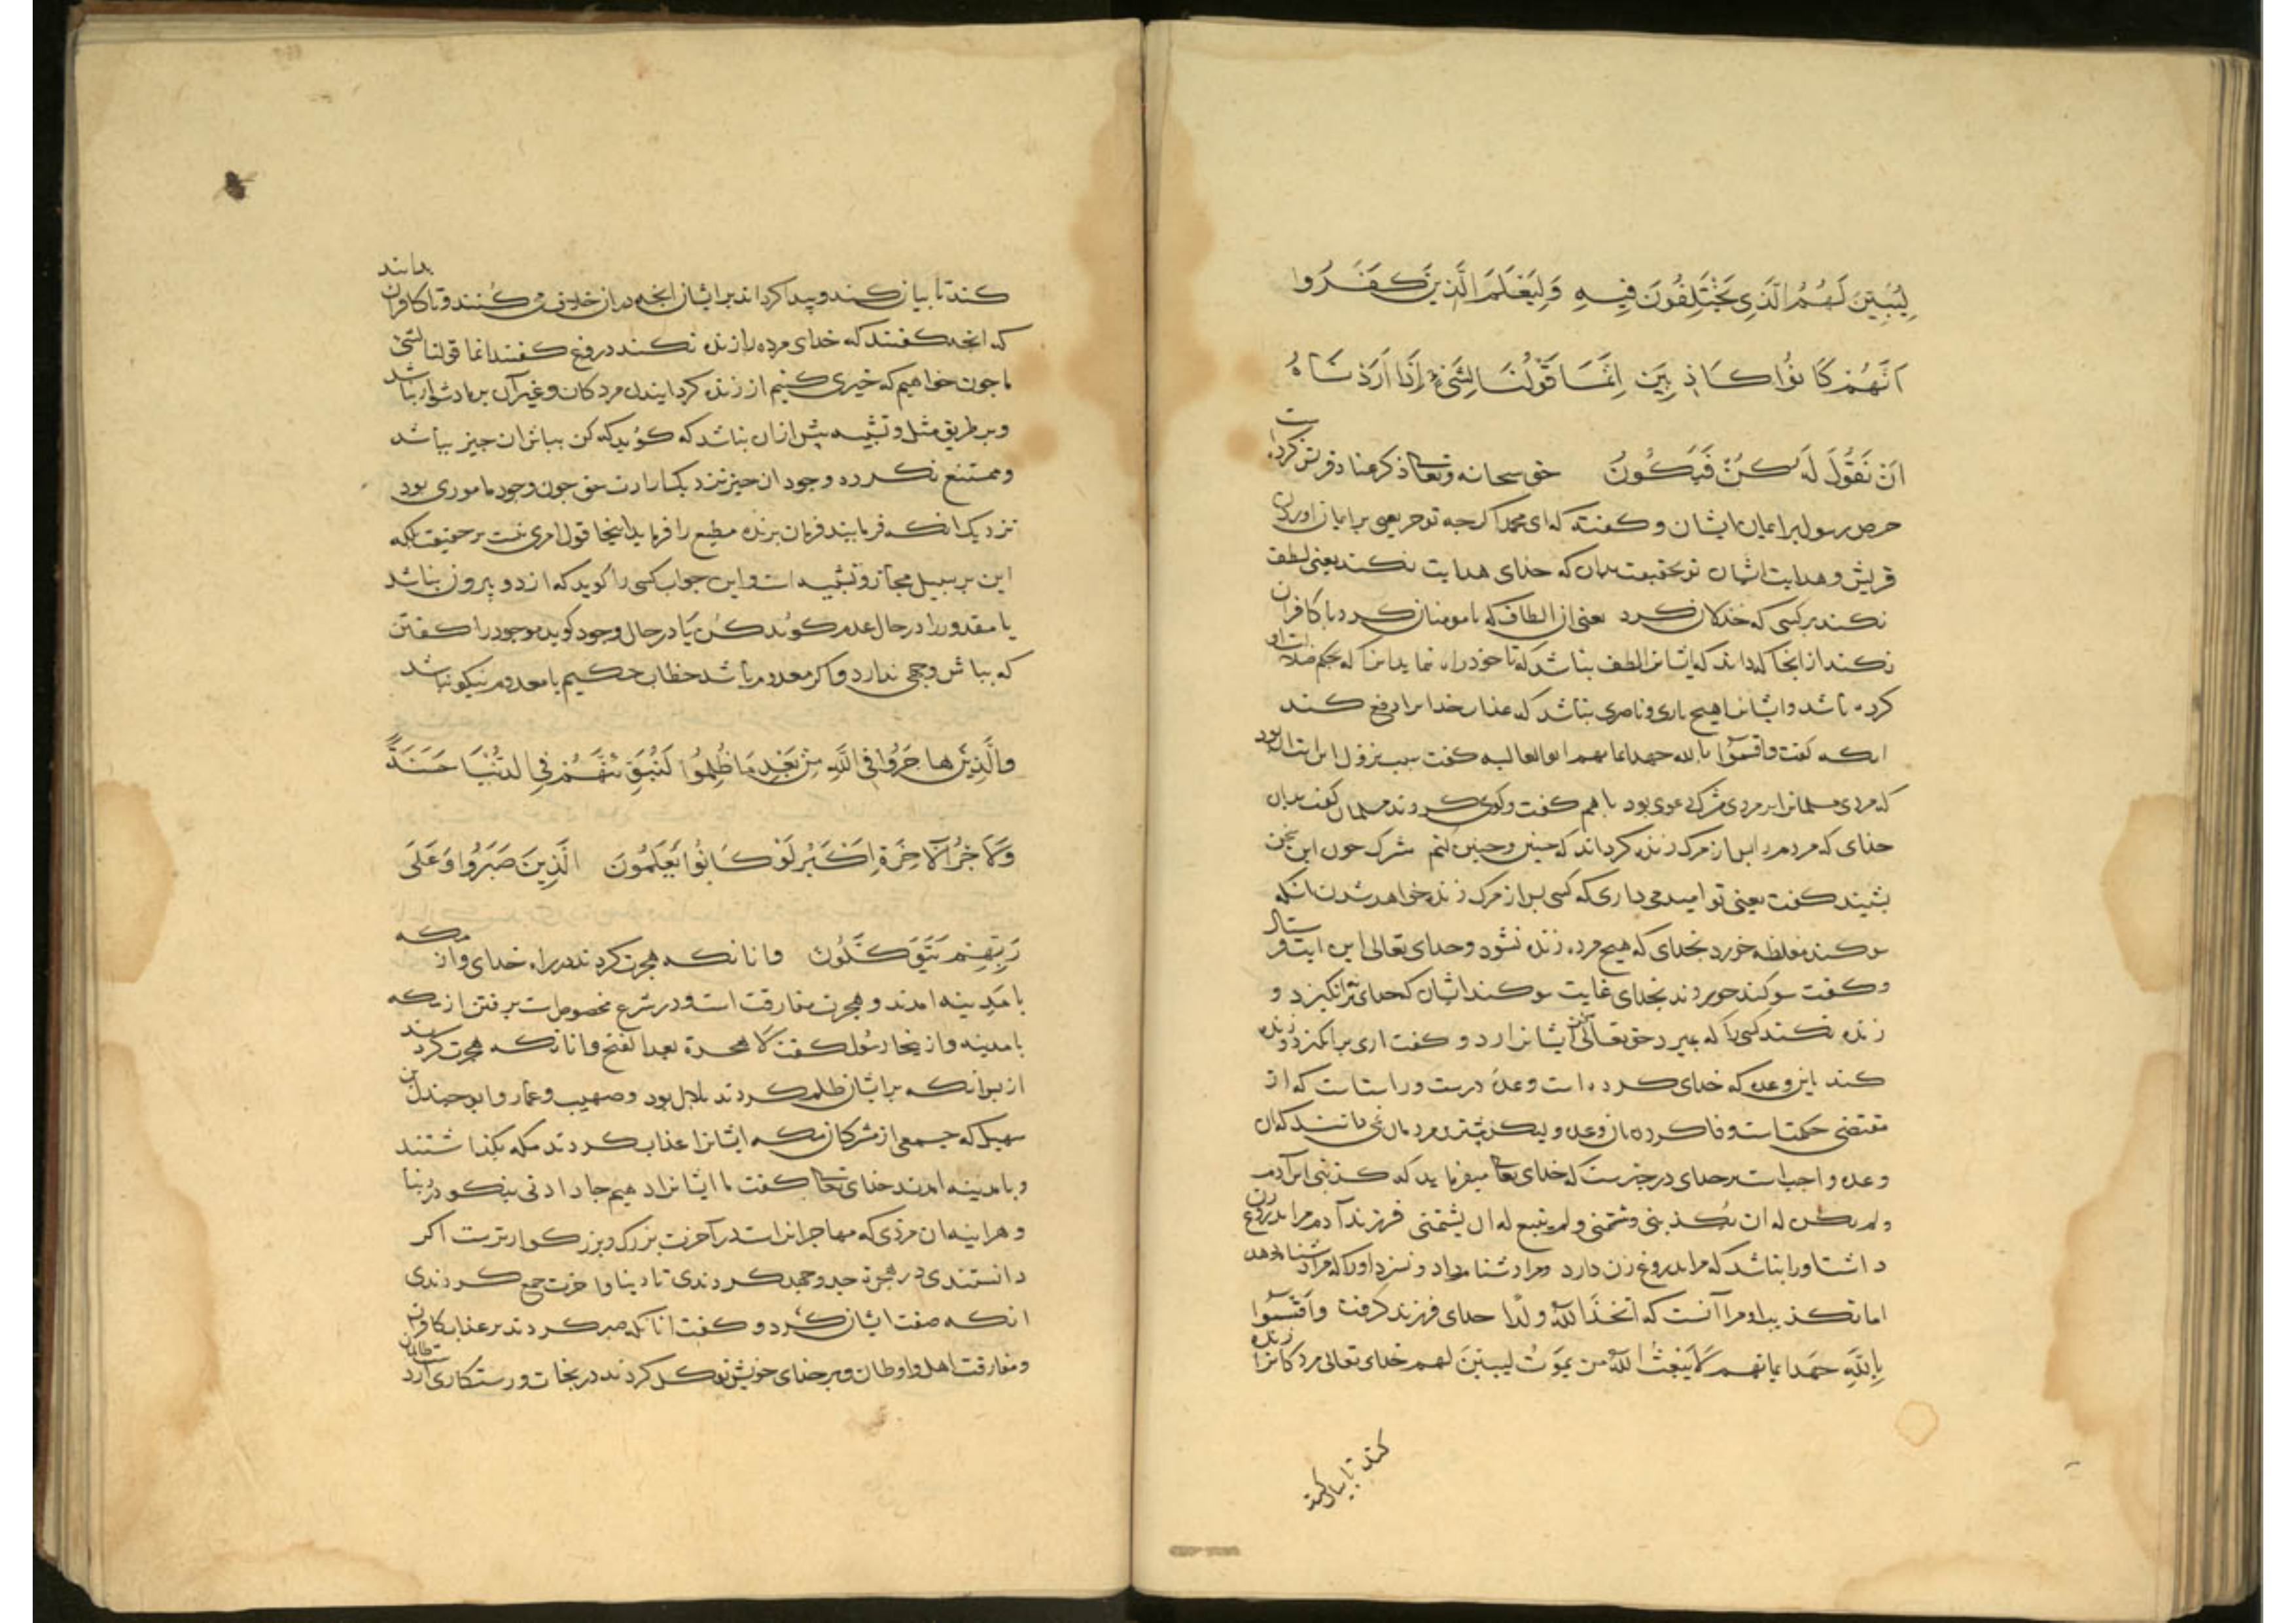 لِيُبَيِّنَ لَهُمُ الَّذِي يَخْتَلِفُونَ فِيهِ وَلِيَعْلَمَ الَّذِينَ كَفَرُوا
اَنَّهُمْ كَانُوا كَاذِبِينَ اِنَّمَا قَوْلُنَا لِشَيْءٍ اِذَا اَرَدْنَاهُ
اَنْ نَقُولَ لَهُ كُنْ فَيَكُونُ حق سبحانه وتعالی ذکر عناد قریش کرد
حرص رسول بر ایمان ایشان و کفت که ای محمد اکرچه تو حریصی بر ایمان اوردن
قریش و هدایت ایشان تو بحقیقت بدان که خدای هدایت نکند یعنی لطف
نکند بر کسی که خذلان کرد یعنی از الطاف که با مومنان کرد با کافران
نکند از انجا که داند که ایشانرا لطف نباشد که تا خود راه نماید انرا که بحکم ضلالت او
کرده باشد و ایشانرا هیچ یاری و ناصری نباشد که عذاب خدا را دفع کند
انکه کفت واقسموا بالله جهد ایمانهم ابوالعالیه کفت سبب نزول این ایت ان بود
که مردی مسلمانرا بر مردی مشرک دعوی بود با هم کفت و کوی کردند مسلمان کفت بدان
خدای که مردم را پس از مرک زنده کرداند که چنین و چنین کنم مشرک چون این سخن
بشنید کفت یعنی تو امید می داری که کسی پس از مرک زنده خواهد شدن انکه
سوکند مغلظه خورد بخدای که هیچ مرده زنده نشود و خدای تعالی این ایت فرستاد
و کفت سوکند خوردند بخدای غایت سوکند ایشان که خدای برنانکیزد و
زنده نکند کسی را که بمیرد حق تعالی بر ایشان رد کرد و کفت اری برانکیزد و زنده
کند این وعده که خدای کرده است وعده درست و راستست که از
مقتضی حکمت است وفا کردن بان وعده ولیکن بیشترین مردمان نمی دانند که ان
وعده واجب است بر خدای در خبرست که خدای تعالی میفرماید که کذبنی ابن آدم
ولم یکن له ان یکذبنی وشتمنی ولم ینبغ له ان یشتمنی فرزند آدم مرا بدروغ زن
داشت و او را نباشد که مرا بدروغ زن دارد و مرا دشنام داد و نسزد او را که مرا دشنام دهد
اما تکذیب او مرا آنست که اتخذ الله ولدًا خدای فرزند کرفت وأقسموا
بالله جهد ایمانهم لا یبعث الله من یموت لیبین لهم خدای تعالی مردکانرا زنده
کند تا بیان کند
کند تا بیان کند و پیدا کرداند بر ایشان انچه در ان خلاف می کنند و تا کافران بدانند
که انچه کفتند که خدای مرده را زنده نکند دروغ کفتند انما قولنا لشی
ما چون خواهیم که چیزی کنیم از زنده کردانیدن مردکان و غیر آن بر ما دشوار نباشد
و بر طریق مثل و تشبیه بیش از ان نباشد که کوید که کن بباش ان چیز بباشد
وممتنع نکردد وجود ان چیز نزدیک ارادت حق چون وجود ماموری بود
نزدیک انکه فرمایند فرمان برنده مطیع را فرماید اینجا قول امری نیست بر حقیقت بلکه
این بر سبیل مجاز و تشبیه است و این جواب کسی را کوید که از دو بیرون نباشد
یا مقدور را در حال عدم کوید کن یا در حال وجود کوید موجود را کفتن
که بباش وجهی ندارد و اکر معدوم باشد خطاب حکیم با معدوم نیکو نباشد
وَالَّذِينَ هَاجَرُوا فِي اللَّهِ مِنْ بَعْدِ مَا ظُلِمُوا لَنُبَوِّئَنَّهُمْ فِي الدُّنْيَا حَسَنَةً
وَلَاَجْرُ الْآخِرَةِ اَكْبَرُ لَوْ كَانُوا يَعْلَمُونَ الَّذِينَ صَبَرُوا وَعَلَى
رَبِّهِمْ يَتَوَكَّلُونَ وانانکه هجرت کردند در راه خدای واز مکه
با مدینه امدند و هجرت مفارقت است و در شرع مخصوص است برفتن از مکه
با مدینه و از اینجا رسول کفت لا هجرة بعد الفتح وانانکه هجرت کردند
از پس انکه بر ایشان ظلم کردند بلال بود و صهیب و عمار و ابو جندل بن
سهیل که جمعی از مشرکان مکه ایشانرا عذاب کردند مکه بکذاشتند
و با مدینه امدند خدای تعالی کفت ما ایشانرا دهیم جا دادنی نیکو در دنیا
و هراینه ان مزدی که مهاجرانراست در آخرت بزرک و بزرکوارترست اکر
دانستندی در هجرة جد و جهد کردندی تا دنیا و اخرت جمع کردندی
انکه صفت ایشان کرد و کفت انانکه صبر کردند بر عذاب کافران
ومفارقت اهل و اوطان و بر خدای خویش توکل کردند در نجات و رستکاری از